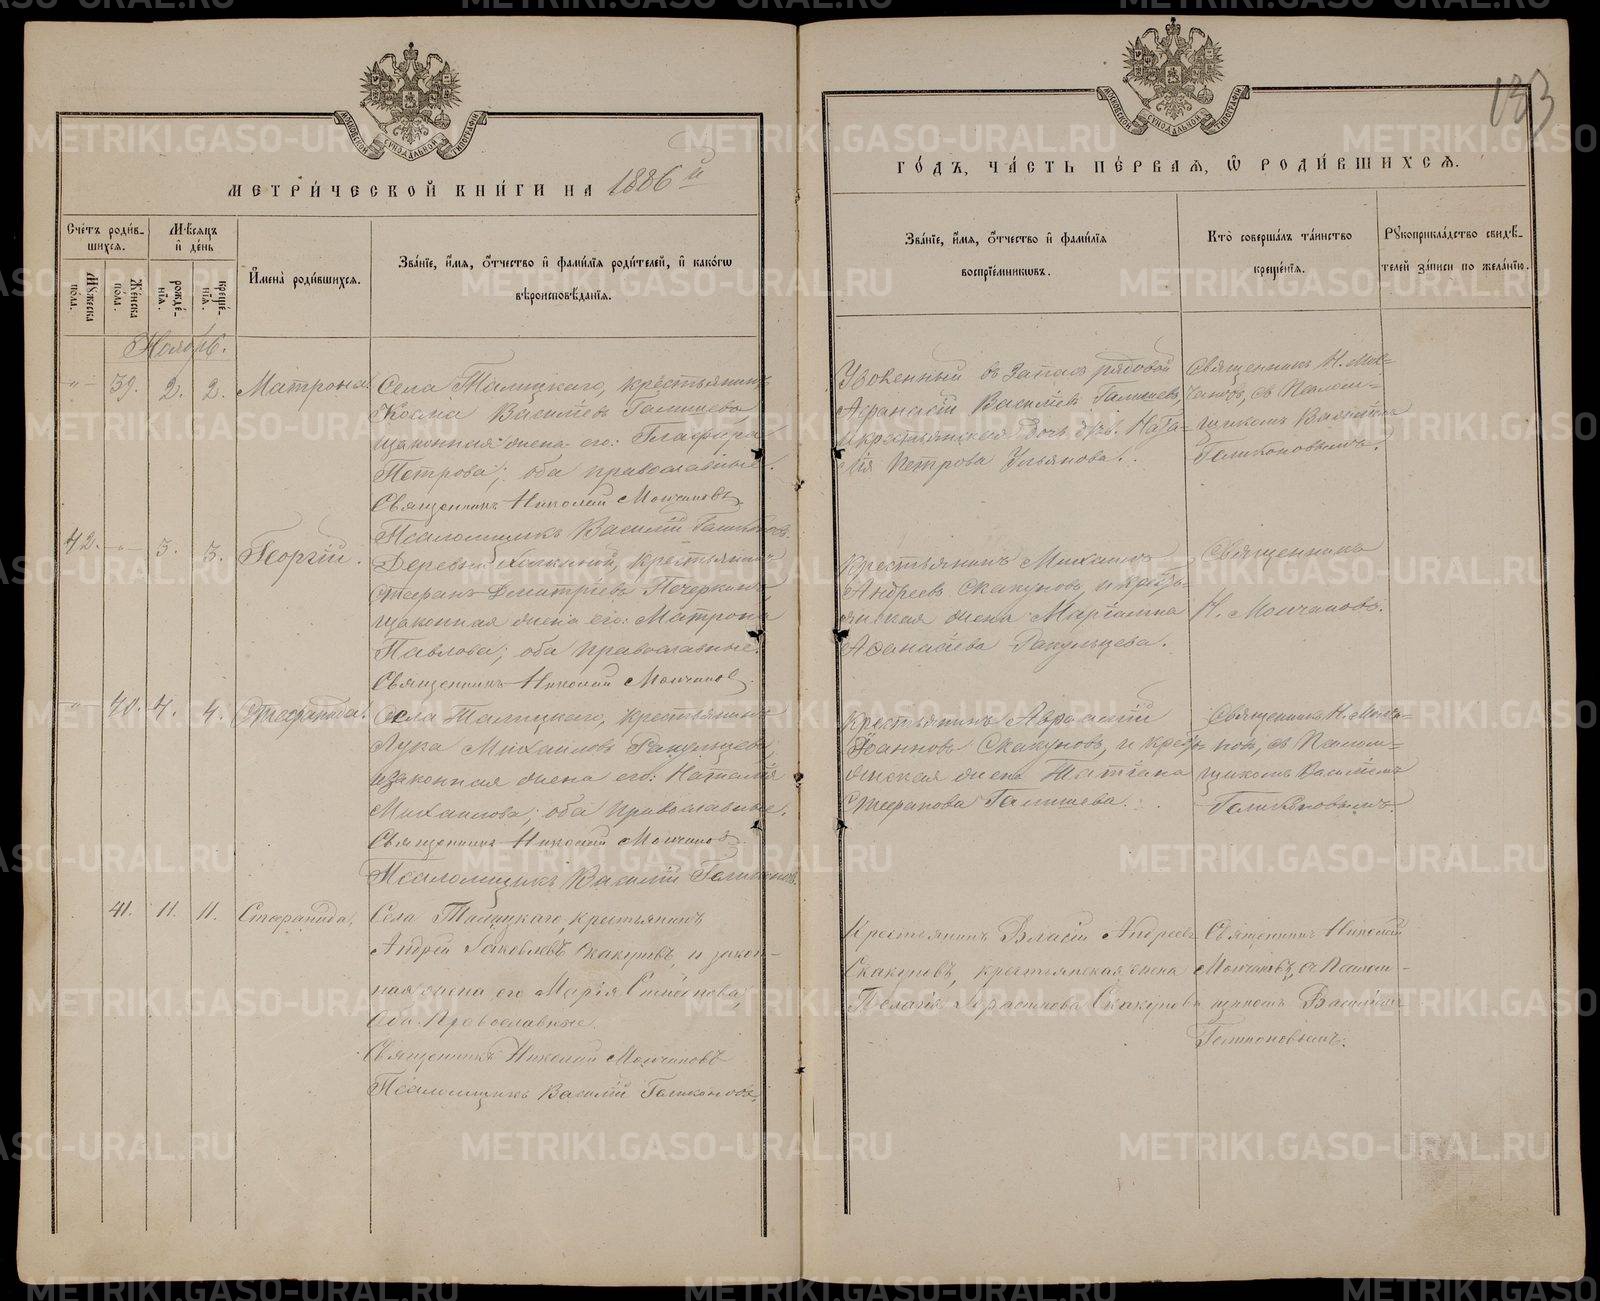 133
МЕТРИ́ЧЕСКОЙ КНИ́ГИ НА 1886 й
ГО́ДЪ, ЧА́СТЬ ПЕ́РВАЯ, Ѡ РОДИ́ВШИХСЯ.
Сче́тъ роди́в-
шихся.
Мѣсяцъ
и де́нь
Мꙋжеска по́ла.
Же́нска по́ла.
рожде́-
нїя.
креще́-
нїя.
И҆мена̀ роди́вшихся.
Зва́нїе, и҆́мя, ѻ҆́тчество и҆ фами́лїя роди́телей, и҆ како́гѡ
вѣроисповѣ́данїя.
Зва́нїе, и҆́мя, ѻ҆́тчество и҆ фами́лїя
воспрїе́мникѡвъ.
Кто̀ соверша́лъ та́инство
креще́нїя.
Рꙋкоприкла́дство свидѣ́-
телей за́писи по жела́нїю.
Ноябрь.
39. 2. 2. Матрона.
Села Талицкаго, крестьянинъ
Косма Васильевъ Галышевъ
и законная жена его: Глафира
Петрова; оба православные.
Священникъ Николай Молчановъ
Псаломщикъ Василій Голиконовъ.
Уволенный въ запасъ рядовой
Афанасій Васильевъ Галышевъ,
и крестьянская дочь дѣв. Ната-
лія Петрова Ульянова.
Священникъ Н. Мол-
чановъ, съ Псалом-
щикомъ Василіемъ
Голиконовымъ.
42. 3. 3. Георгій.
Деревни крестьянинъ
Стефанъ Димитріевъ Печеркинъ
и законная жена его: Матрона
Павлова; оба православные.
Священникъ Николай Молчановъ
Крестьянинъ Михаилъ
Андреевъ Скакуновъ, и кресть-
янская жена Маріамна
Афанасіева Ракульцева.
Священникъ
Н. Молчановъ.
40. 4. 4. Стефанида.
Села Талицкаго, крестьянинъ
Лука Михаиловъ Ракульцевъ
и законная жена его: Наталія
Михаилова; оба православные.
Священникъ Николай Молчановъ
Псаломщикъ Василій Голиконовъ.
Крестьянинъ
Іоанновъ Скакуновъ, и кресть-
янская жена Татіана
Стефанова Галышева.
Священникъ Н. Молча-
новъ, съ Псалом-
щикомъ Василіемъ
Голиконовымъ.
41. 11. 11. Стефанида.
Села Талицкаго, крестьянинъ
Андрей Яковлевъ Скакуновъ, и закон-
ная жена его Марія
Оба Православные.
Священникъ Николай Молчановъ
Псаломщикъ Василій Голиконовъ.
Крестьянинъ Власій Андреевъ
Скакуновъ, крестьянская жена
Пелагія Скакунова
Священникъ Николай
Молчановъ, съ Псалом-
щикомъ Василіемъ
Голиконовымъ.
METRIKI.GASO-URAL.RU